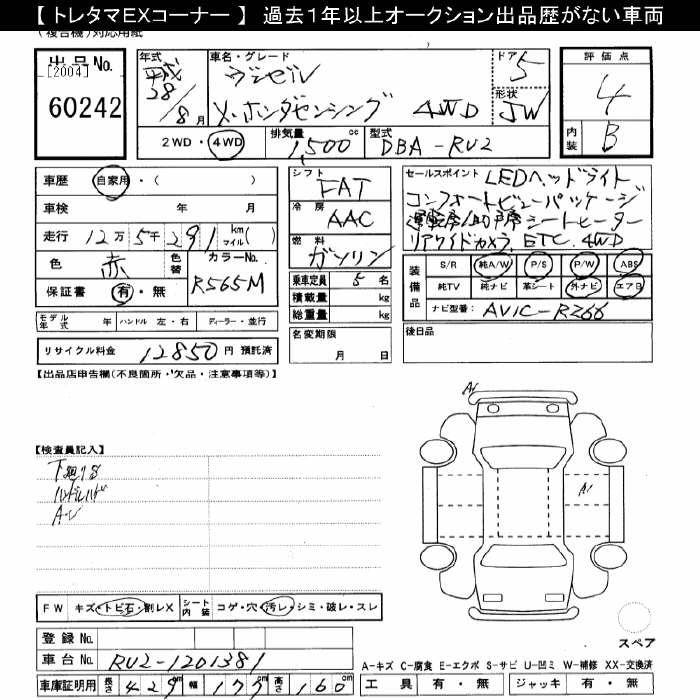 【 トレタマEXコーナー 】 過去1年以上オークション出品歴がない車両
(複合機)対応用紙
出品No.
[2004]
60242
年式
平成
28/8月
車名・グレード
ヴェゼル
X・ホンダセンシング 4WD
ドア
5
形状
JW
評価点
4
内装
B
2WD・4WD
排気量
1,500 cc
型式
DBA-RU2
車歴 自家用・( )
車検 年 月
走行 12万5千291 km マイル( )
色 赤 色替 カラーNo. R565M
保証書 有・無
モデル年式 年 ハンドル 左・右 ディーラー・並行
リサイクル料金 12850 円 預託済
シフト
FAT
冷房
AAC
燃料
ガソリン
乗車定員 5 名
積載量 kg
総重量 kg
名変期限
月 日
セールスポイント LEDヘッドライト
コンフォートビューパッケージ
運転席/助手席シートヒーター
リアワイドカメラ, ETC. 4WD
装備品
S/R 純A/W P/S P/W ABS
純TV 純ナビ 革シート 外ナビ エアB
ナビ型番: AVIC-RZ66
後日品
【出品店申告欄(不良箇所・欠品・注意事項等)】
【検査員記入】
A1
A1
FW キズ・トビ石・割レX シート内装 コゲ・穴・汚レ・シミ・破レ・スレ
登録No.
車台No. RU2-1201381
車庫証明用 長さ 429 cm 幅 177 cm 高さ 160 cm
スペア
A-キズ C-腐食 E-エクボ S-サビ U-凹ミ W-補修 XX-交換済
工具 有・無 ジャッキ 有・無